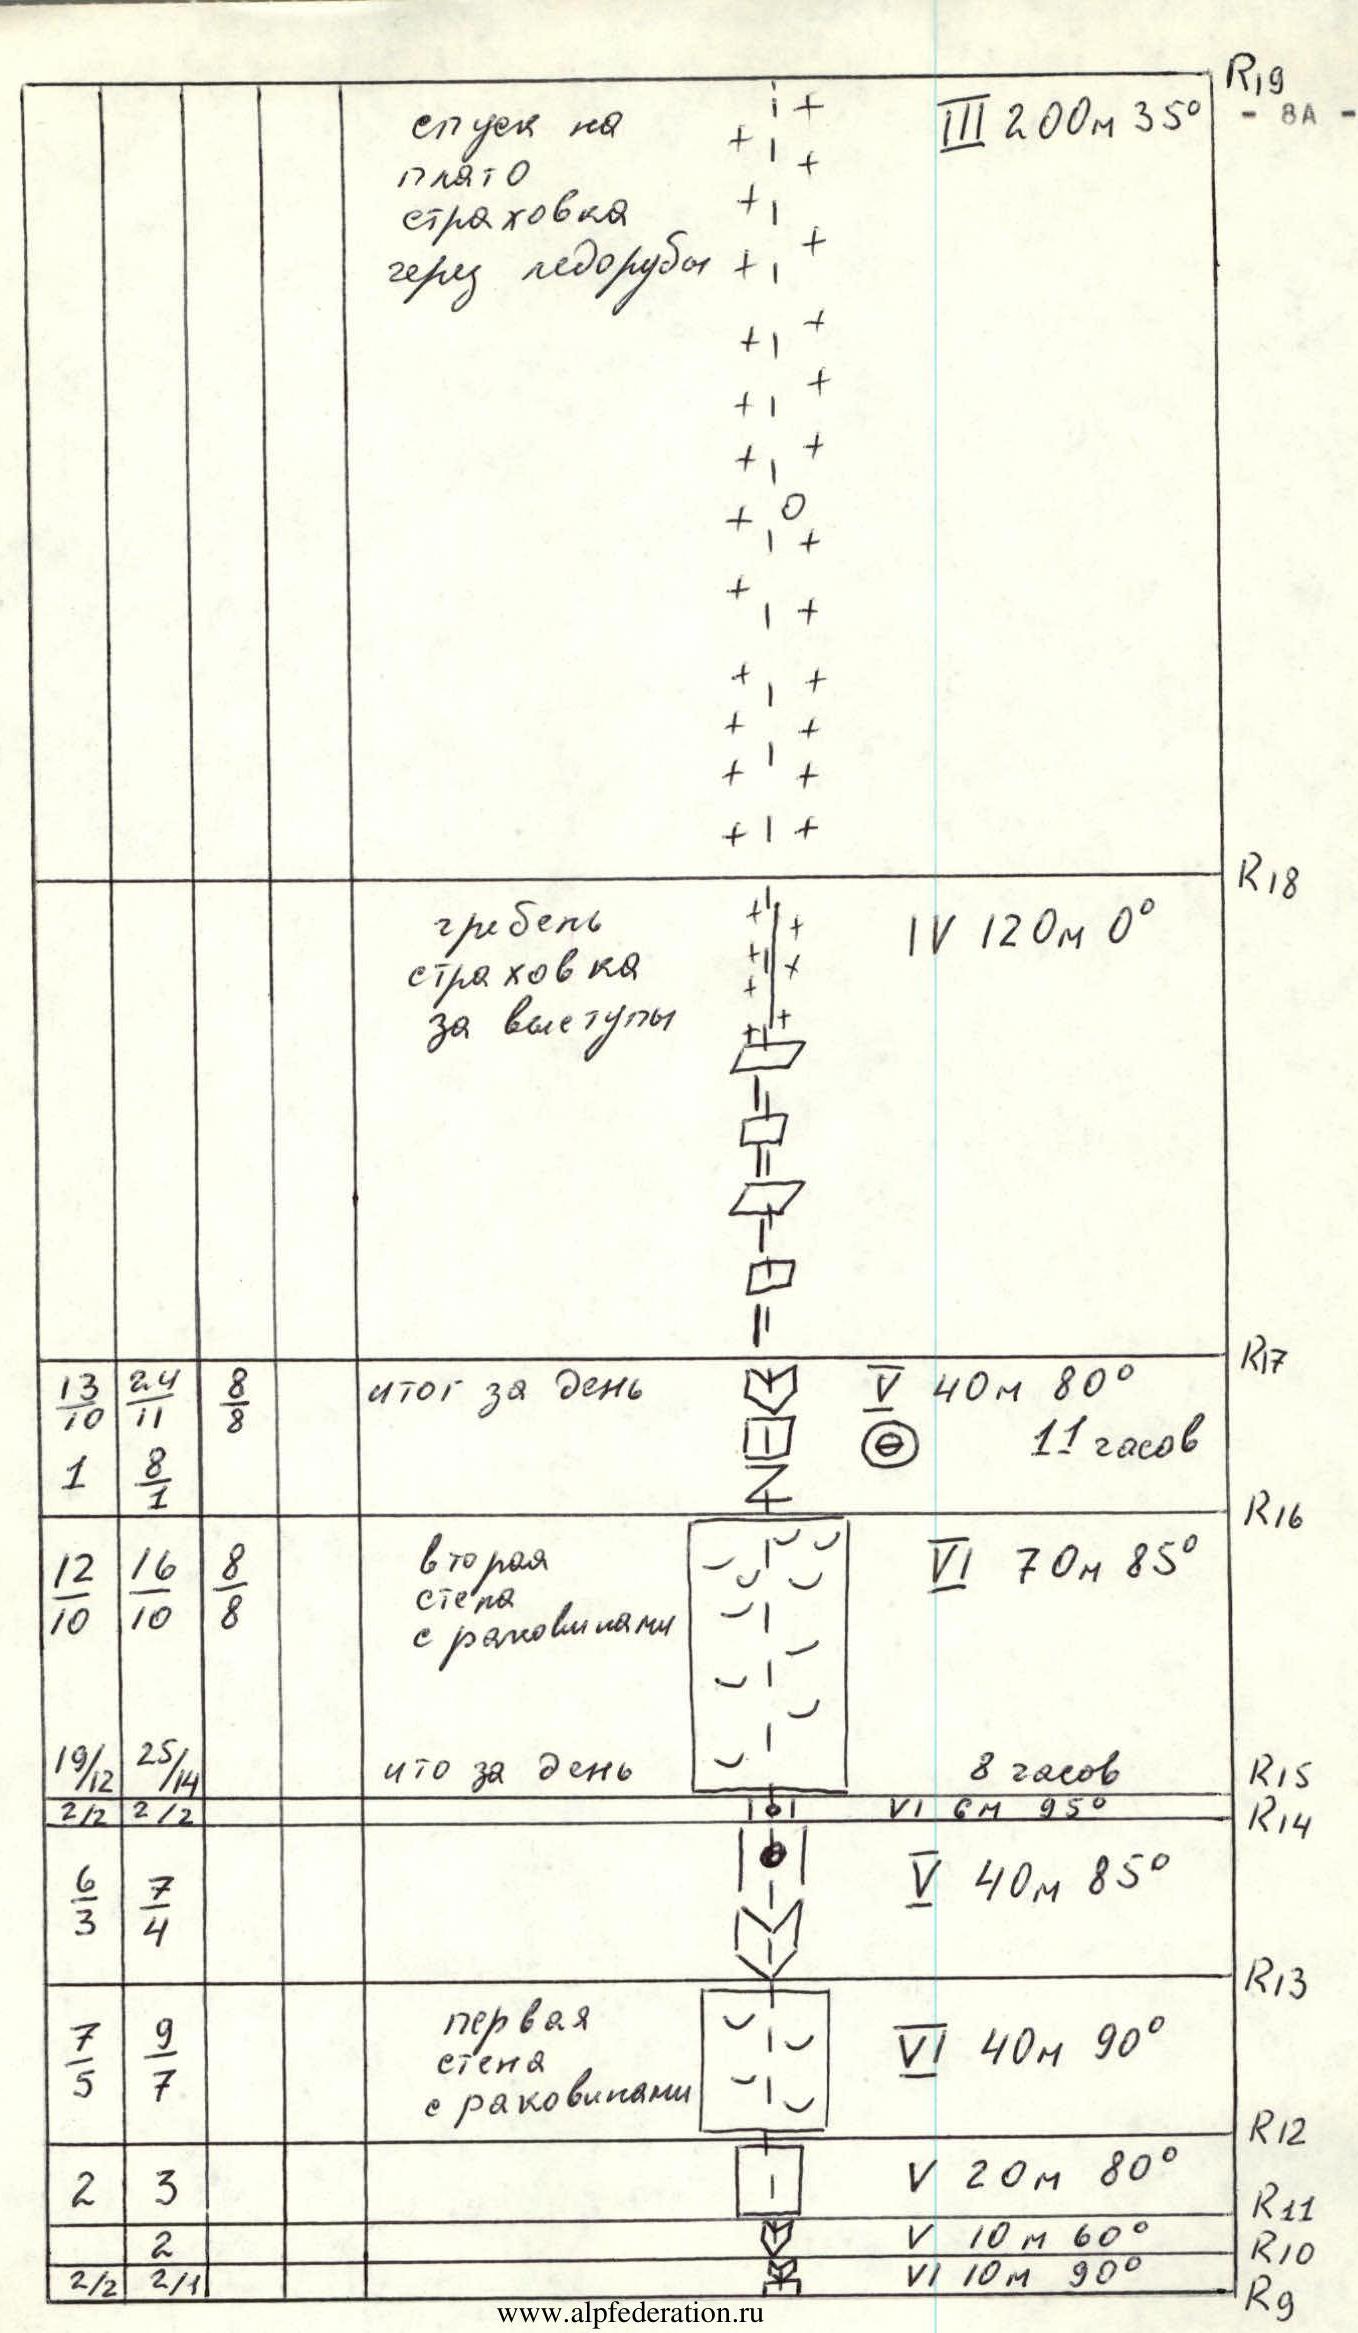 R19
- 8А -
спуск на
плато
страховка
через ледорубы
III 200м 35°
R18
гребень
страховка
за выступы
IV 120м 0°
R17
13/10 24/11 8/8 итог за день V 40м 80°
1 8/1 11 часов
R16
12/10 16/10 8/8
вторая
стена
с раковинами
VI 70м 85°
19/12 25/14 ито за день 8 часов R15
2/2 2/2 VI 6м 95°
R14
6/3 7/4 V 40м 85°
R13
7/5 9/7
первая
стена
с раковинами
VI 40м 90°
R12
2 3 V 20м 80°
R11
2 V 10м 60°
R10
2/2 2/1 VI 10м 90°
R9
www.alpfederation.ru